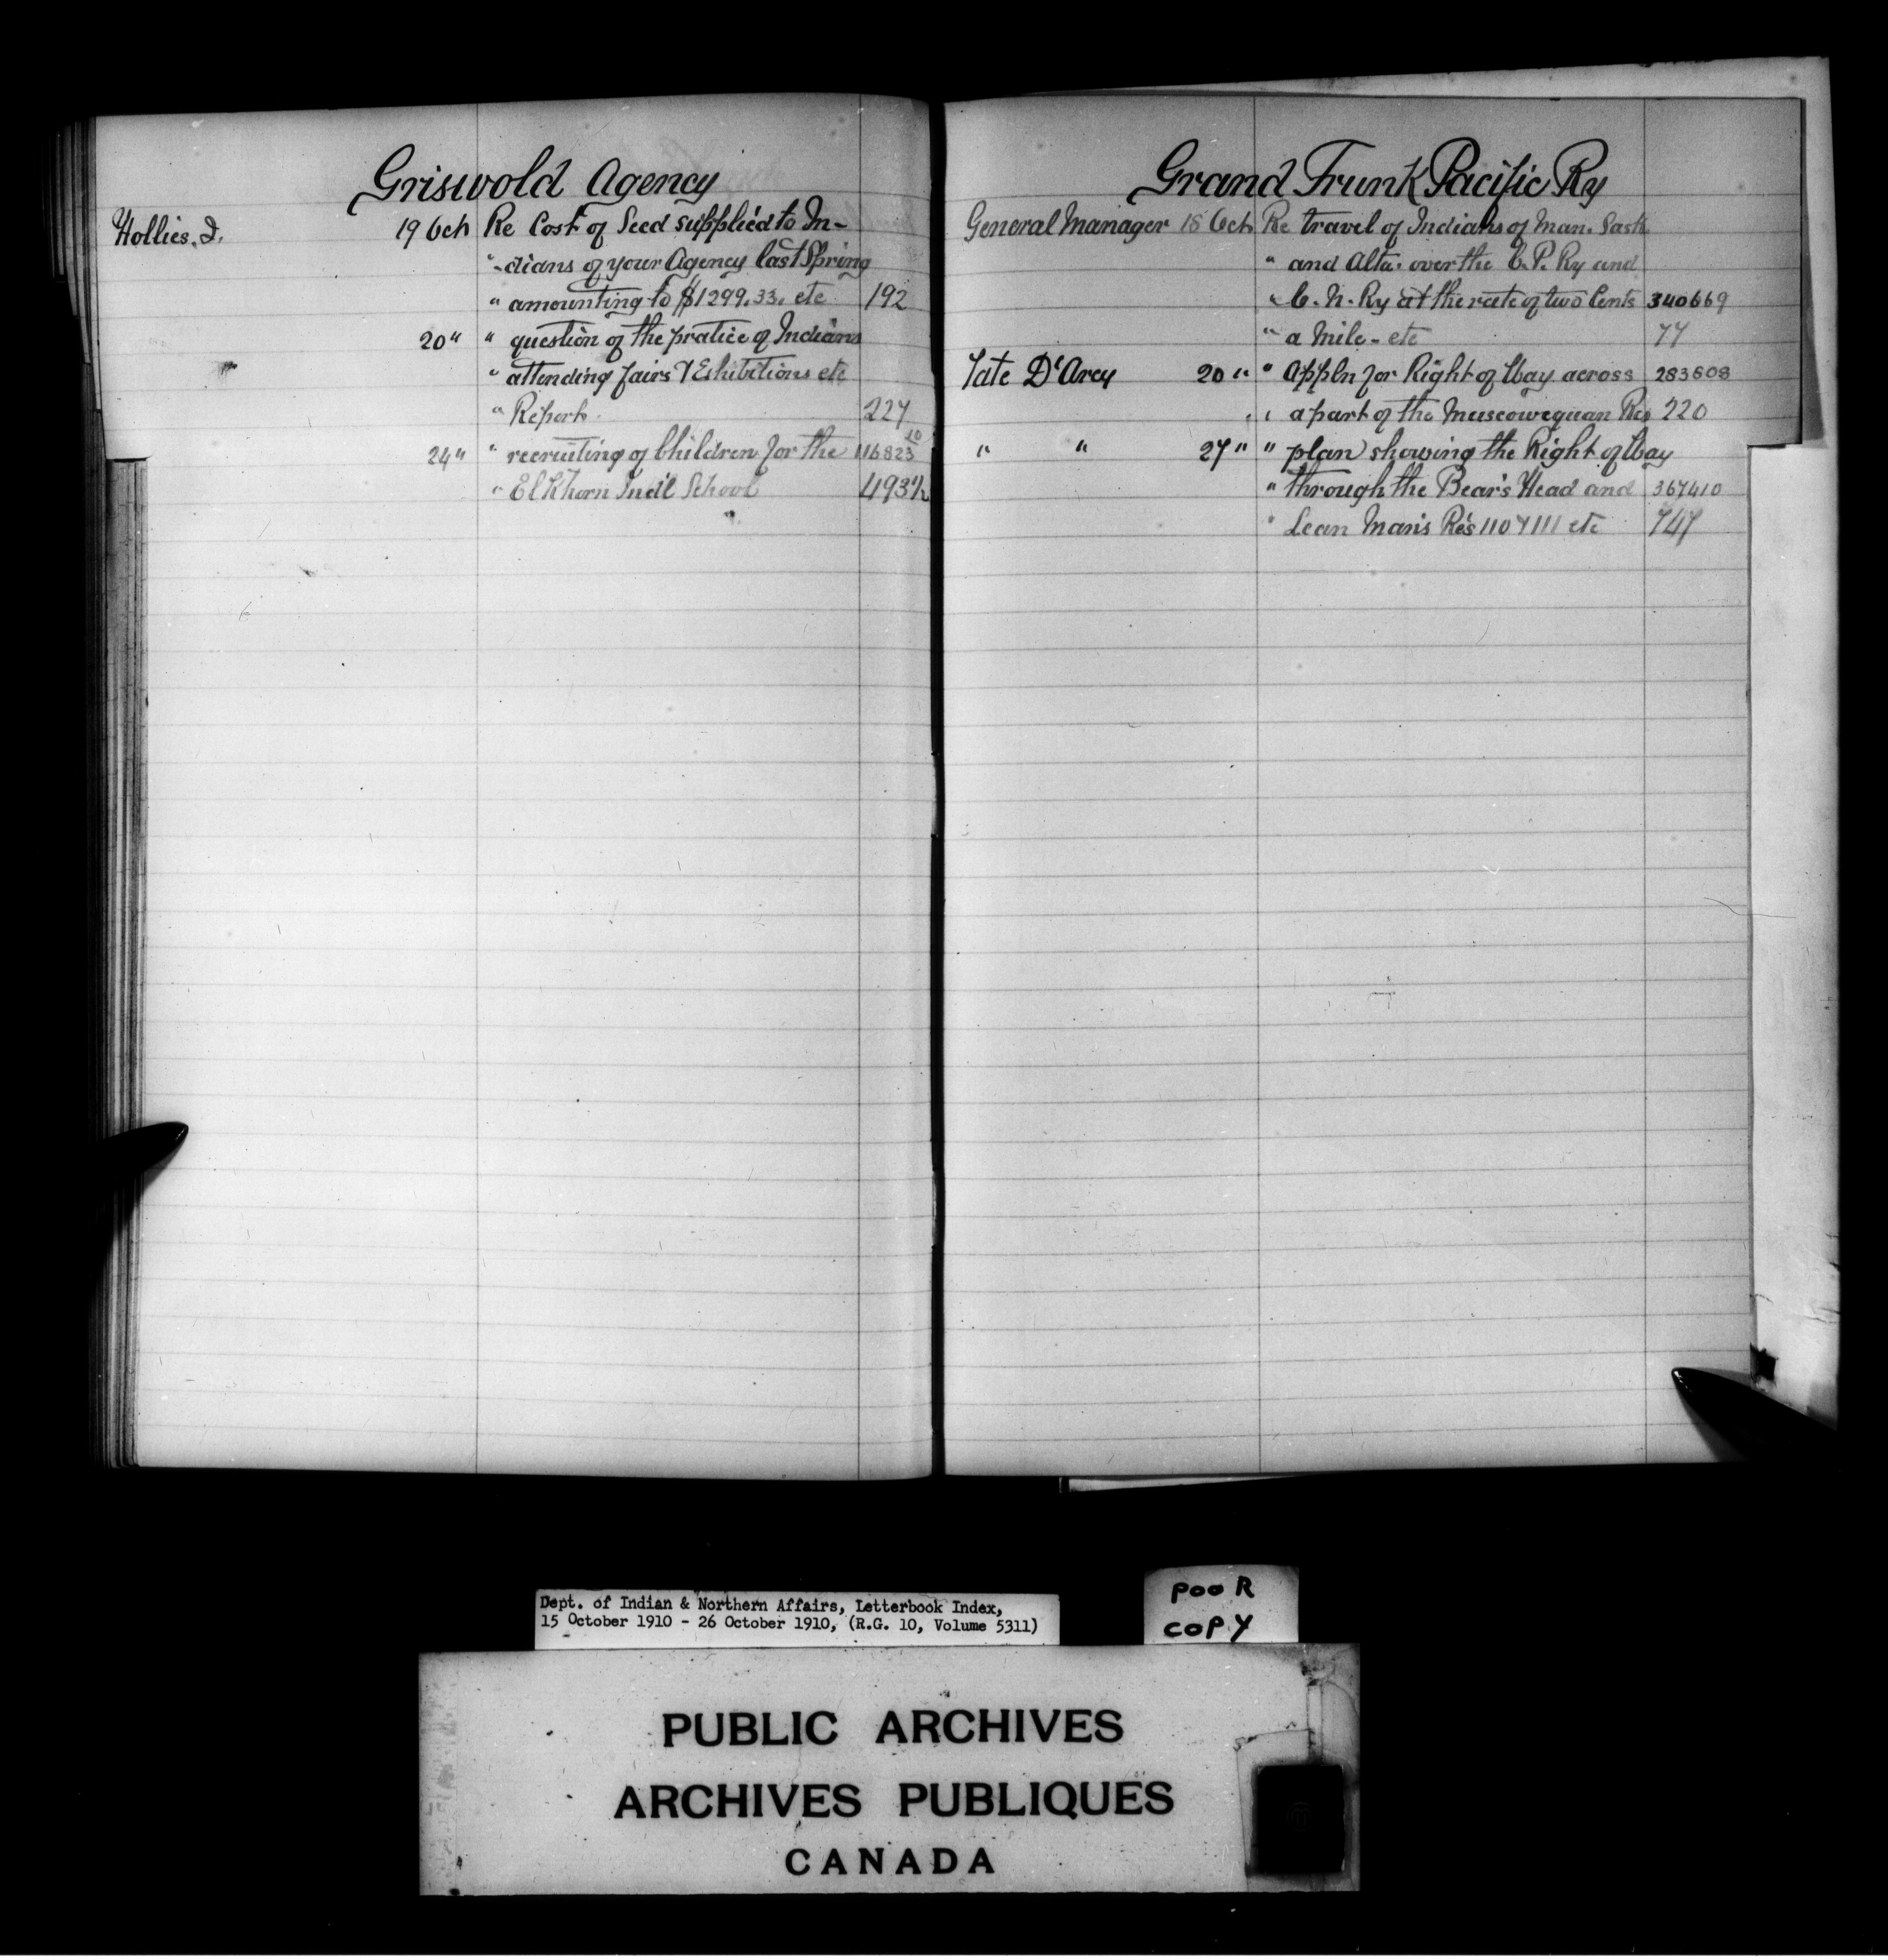 Griswold Agency
Hollies. J. 19 Oct Re Cost of Seed supplied to In-
" -dians of your Agency last Spring
" amounting to $1299.33. etc 192
20 " " question of the pratice of Indians
" attending fairs & Exhibitions etc
" Report 227
24 " " recruiting of Children for the 116823 10
" Elkhorn Ind'l School 493½
Grand Trunk Pacific Ry
General Manager 18 Oct Re travel of Indians of Man. Sask.
" and Alta. over the C. P. Ry and
" C. N. Ry at the rate of two Cents 340669
" a mile - etc 77
Tate D'Arcy 20 " " Appln for Right of Way across 283608
" " a part of the Muscowequan Res 220
" " 27 " " plan showing the Right of Way
" through the Bear's Head and 367410
" Lean Man's Res 110 & 111 etc 747
Dept. of Indian & Northern Affairs, Letterbook Index,
15 October 1910 - 26 October 1910, (R.G. 10, Volume 5311)
POOR
COPY
PUBLIC ARCHIVES
ARCHIVES PUBLIQUES
CANADA